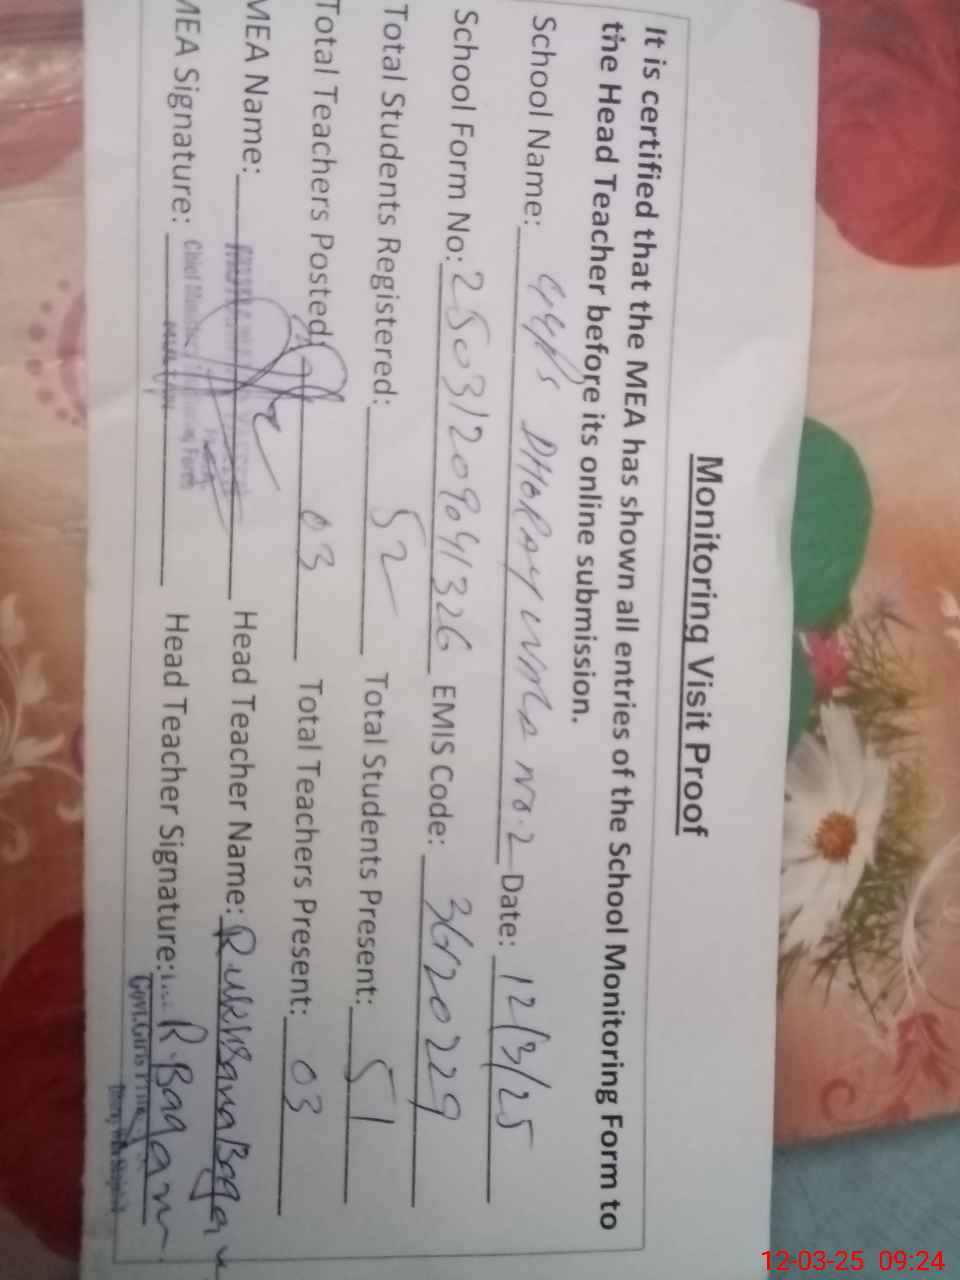 Monitoring Visit Proof
It is certified that the MEA has shown all entries of the School Monitoring Form to
the Head Teacher before its online submission.
School Name: GGPS DHORAY WALA NO.2 Date: 12/3/25
School Form No: 25031209041326 EMIS Code: 36120229
Total Students Registered: 52 Total Students Present: 51
Total Teachers Posted: 03 Total Teachers Present: 03
MEA Name: Head Teacher Name: Rukhsana Bagam
MEA Signature: Head Teacher Signature: R.Bagam
Govt.Girls
12-03-25 09:24